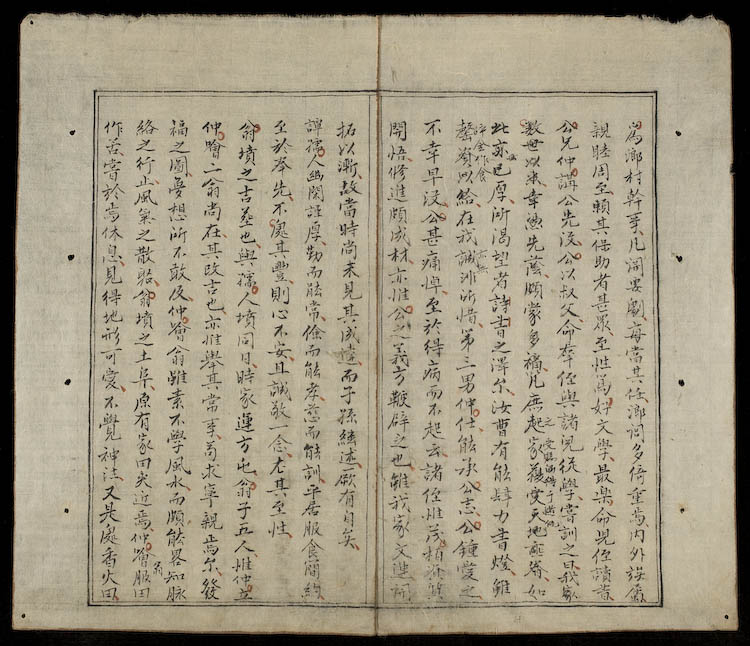 為鄉村幹事凡洞要劇每當其任鄉詞多倚重焉內外族屬
親睦周至賴其俻助者甚眾至性篤好文學最樂命兒侄讀書
公兄仲講公先沒公以叔父命奉侄與諸兒從學嘗訓之曰我家
教世以來幸憑先蔭頗蒙多福凡庶起家獲受天地
此亦已厚所渴望者詩書之澤尔汝曹有能肆力書燈雖
罄資以給在我誠非所惜第三男仲仕能承公志公鍾愛之
不幸早沒公甚痛悼至於得病而不起云諸侄惟茂栢
開悟修進頗成材亦惟公之義方鞭辟之也雖我家文進
拓以漸故當時尚未見其成達而子孫繼述厥有自矣
諱孺人幽閑謹厚勤而能常儉而能孝慈而能訓平居服食簡約
至於奉先不處其豐則心不安且誠敬一念尤其至性
翁墳之古墓也與孺人墳同日時家運方屯翁子五人惟仲立
仲噲二翁尚在其改吉也亦惟舉其常事苟求寧親焉尔發
福之圖夢想所不敢及仲噲翁雖素不學風水而頗能畧知脉
絡之行止風氣之散聚翁墳之土阜原有家田尖近焉仲噲翁服田
作苦嘗於焉休息見得地形可愛不覺神注又是處香火田